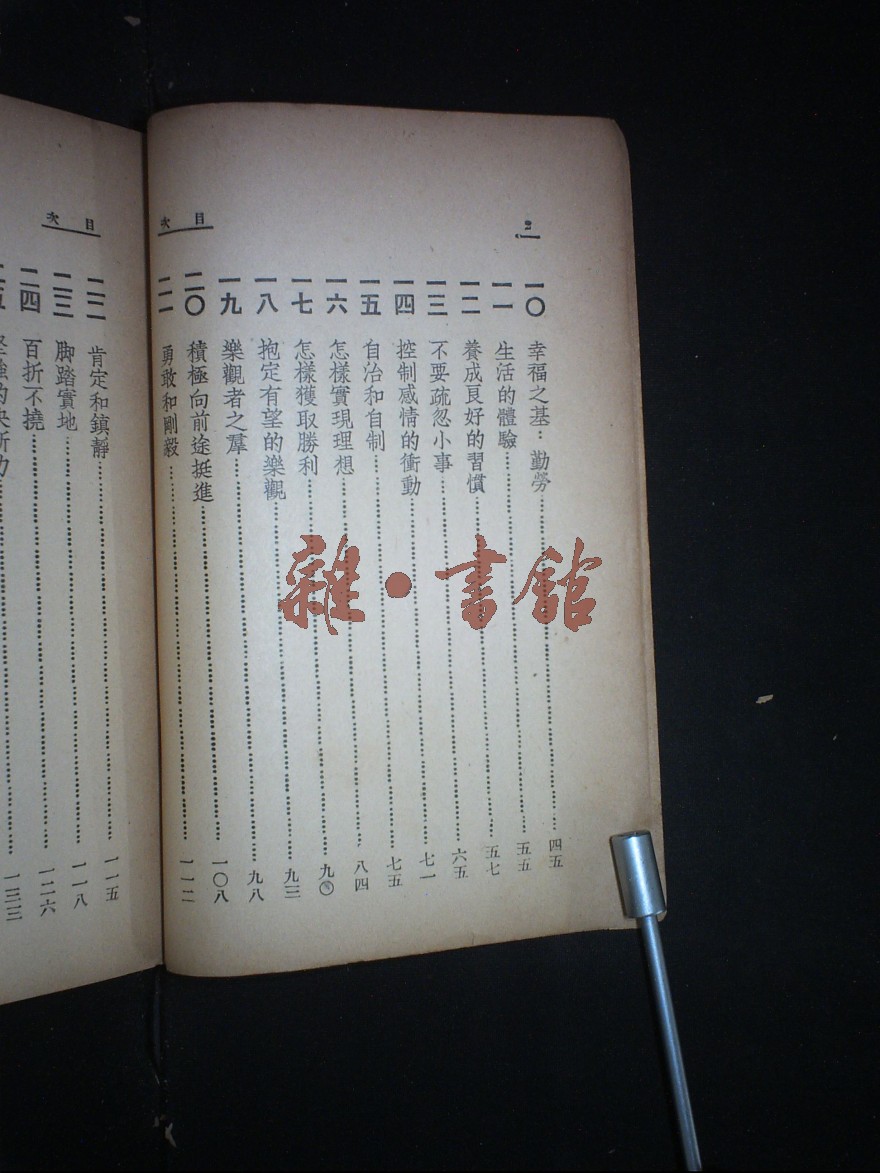 目次
一〇 幸福之基：勤勞……四五
一一 生活的體驗……五五
一二 養成良好的習慣……五七
一三 不要疏忽小事……六五
一四 控制感情的衝動……七一
一五 自治和自制……七五
一六 怎樣實現理想……八四
一七 怎樣獲取勝利……九〇
一八 抱定有望的樂觀……九三
一九 樂觀者之羣……九八
二〇 積極向前途挺進……一〇八
二一 勇敢和剛毅……一一二
目次
二二 肯定和鎮靜……一一五
二三 脚踏實地……一一八
二四 百折不撓……一二六
二五 堅強的決斷力……一三三
雜·書館